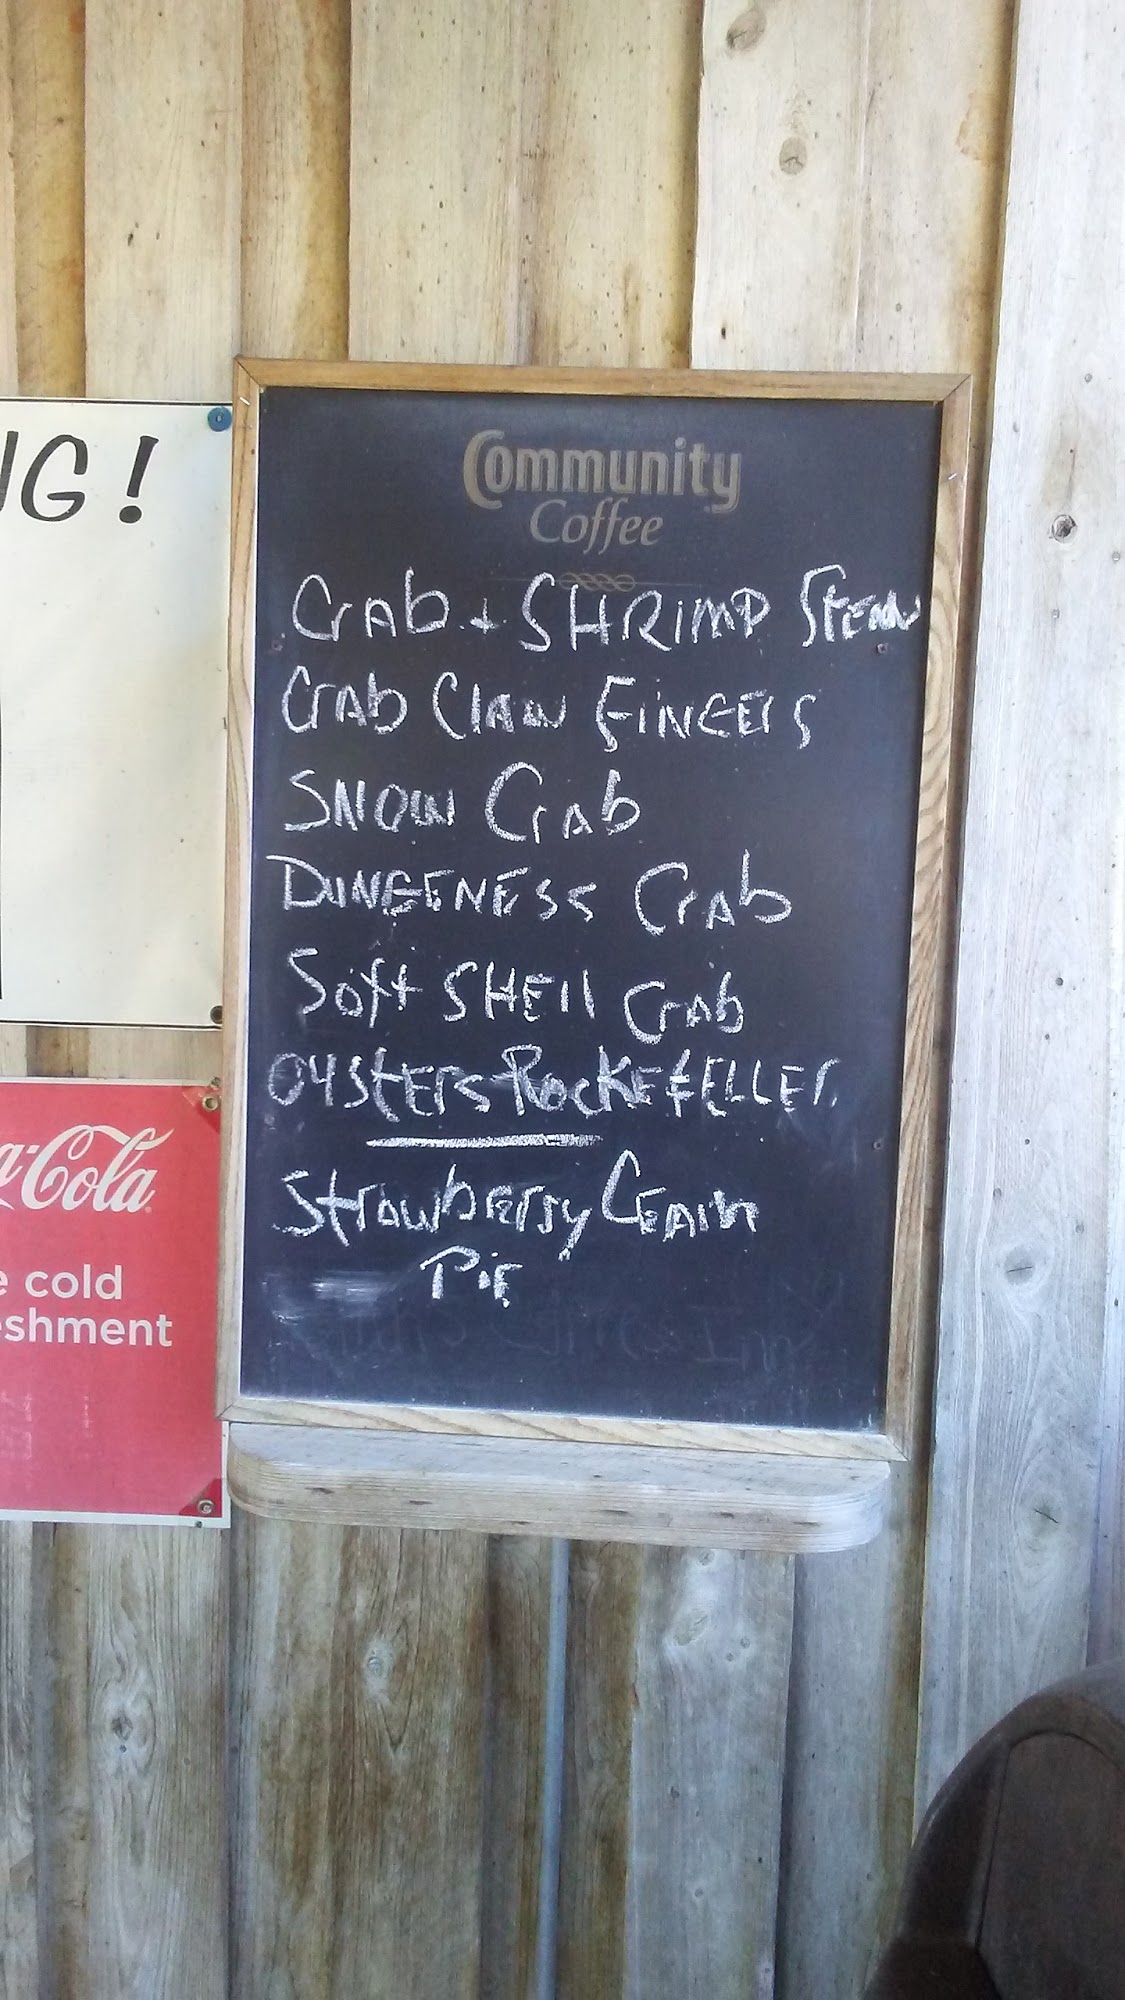 NG!
Community
Coffee
Crab + SHRIMP Stew
Crab Claw FiNGErS
SNOW Crab
DUNGENESS Crab
Soft SHEll Crab
OYSTErS ROCKEfELLEr
Strawberry Cream
PiE
a-Cola
e cold
eshment